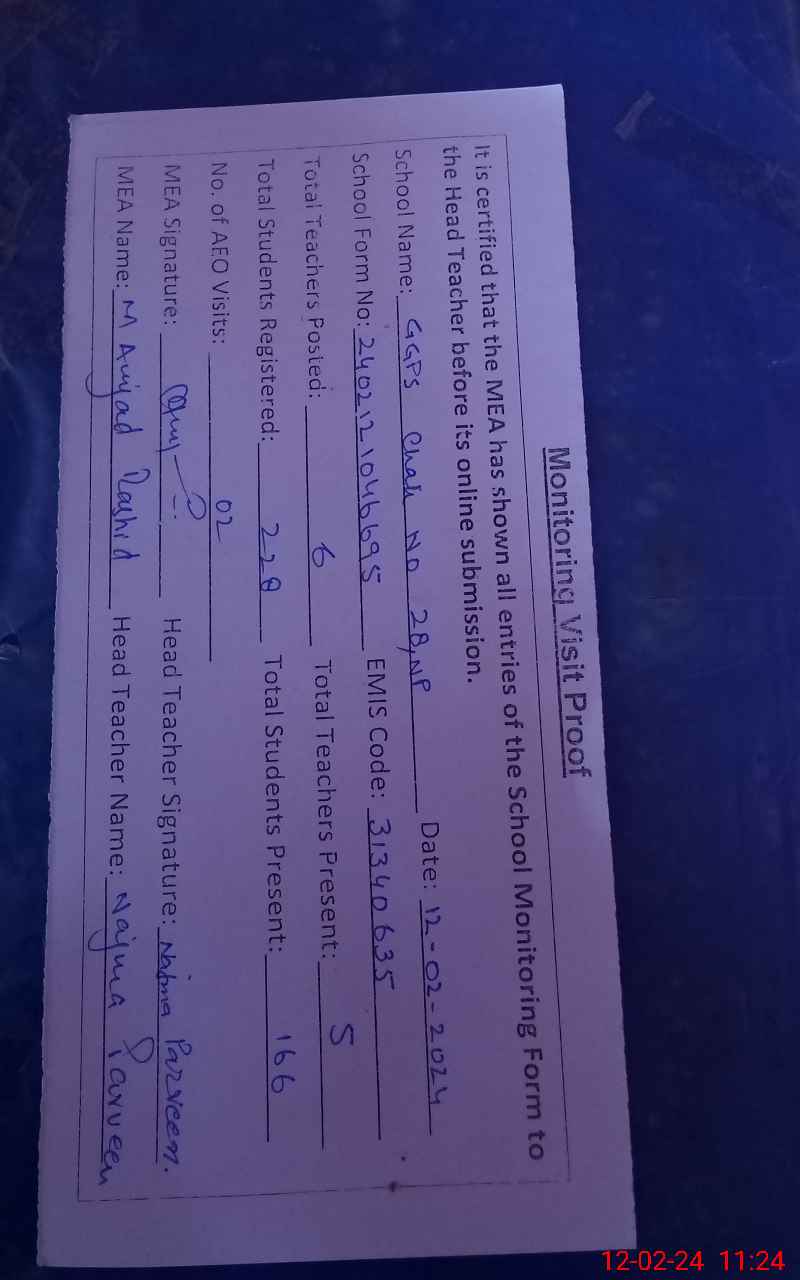 Monitoring Visit Proof
It is certified that the MEA has shown all entries of the School Monitoring Form to
the Head Teacher before its online submission.
School Name: GGPS Chak No 28/NP Date: 12-02-2024
School Form No: 2402121046695 EMIS Code: 31340635
Total Teachers Posted: 6 Total Teachers Present: 5
Total Students Registered: 228 Total Students Present: 166
No. of AEO Visits: 02
MEA Signature: Head Teacher Signature: Najma Parveen.
MEA Name: M Amjad Rashid Head Teacher Name: Najma Parveen
12-02-24 11:24